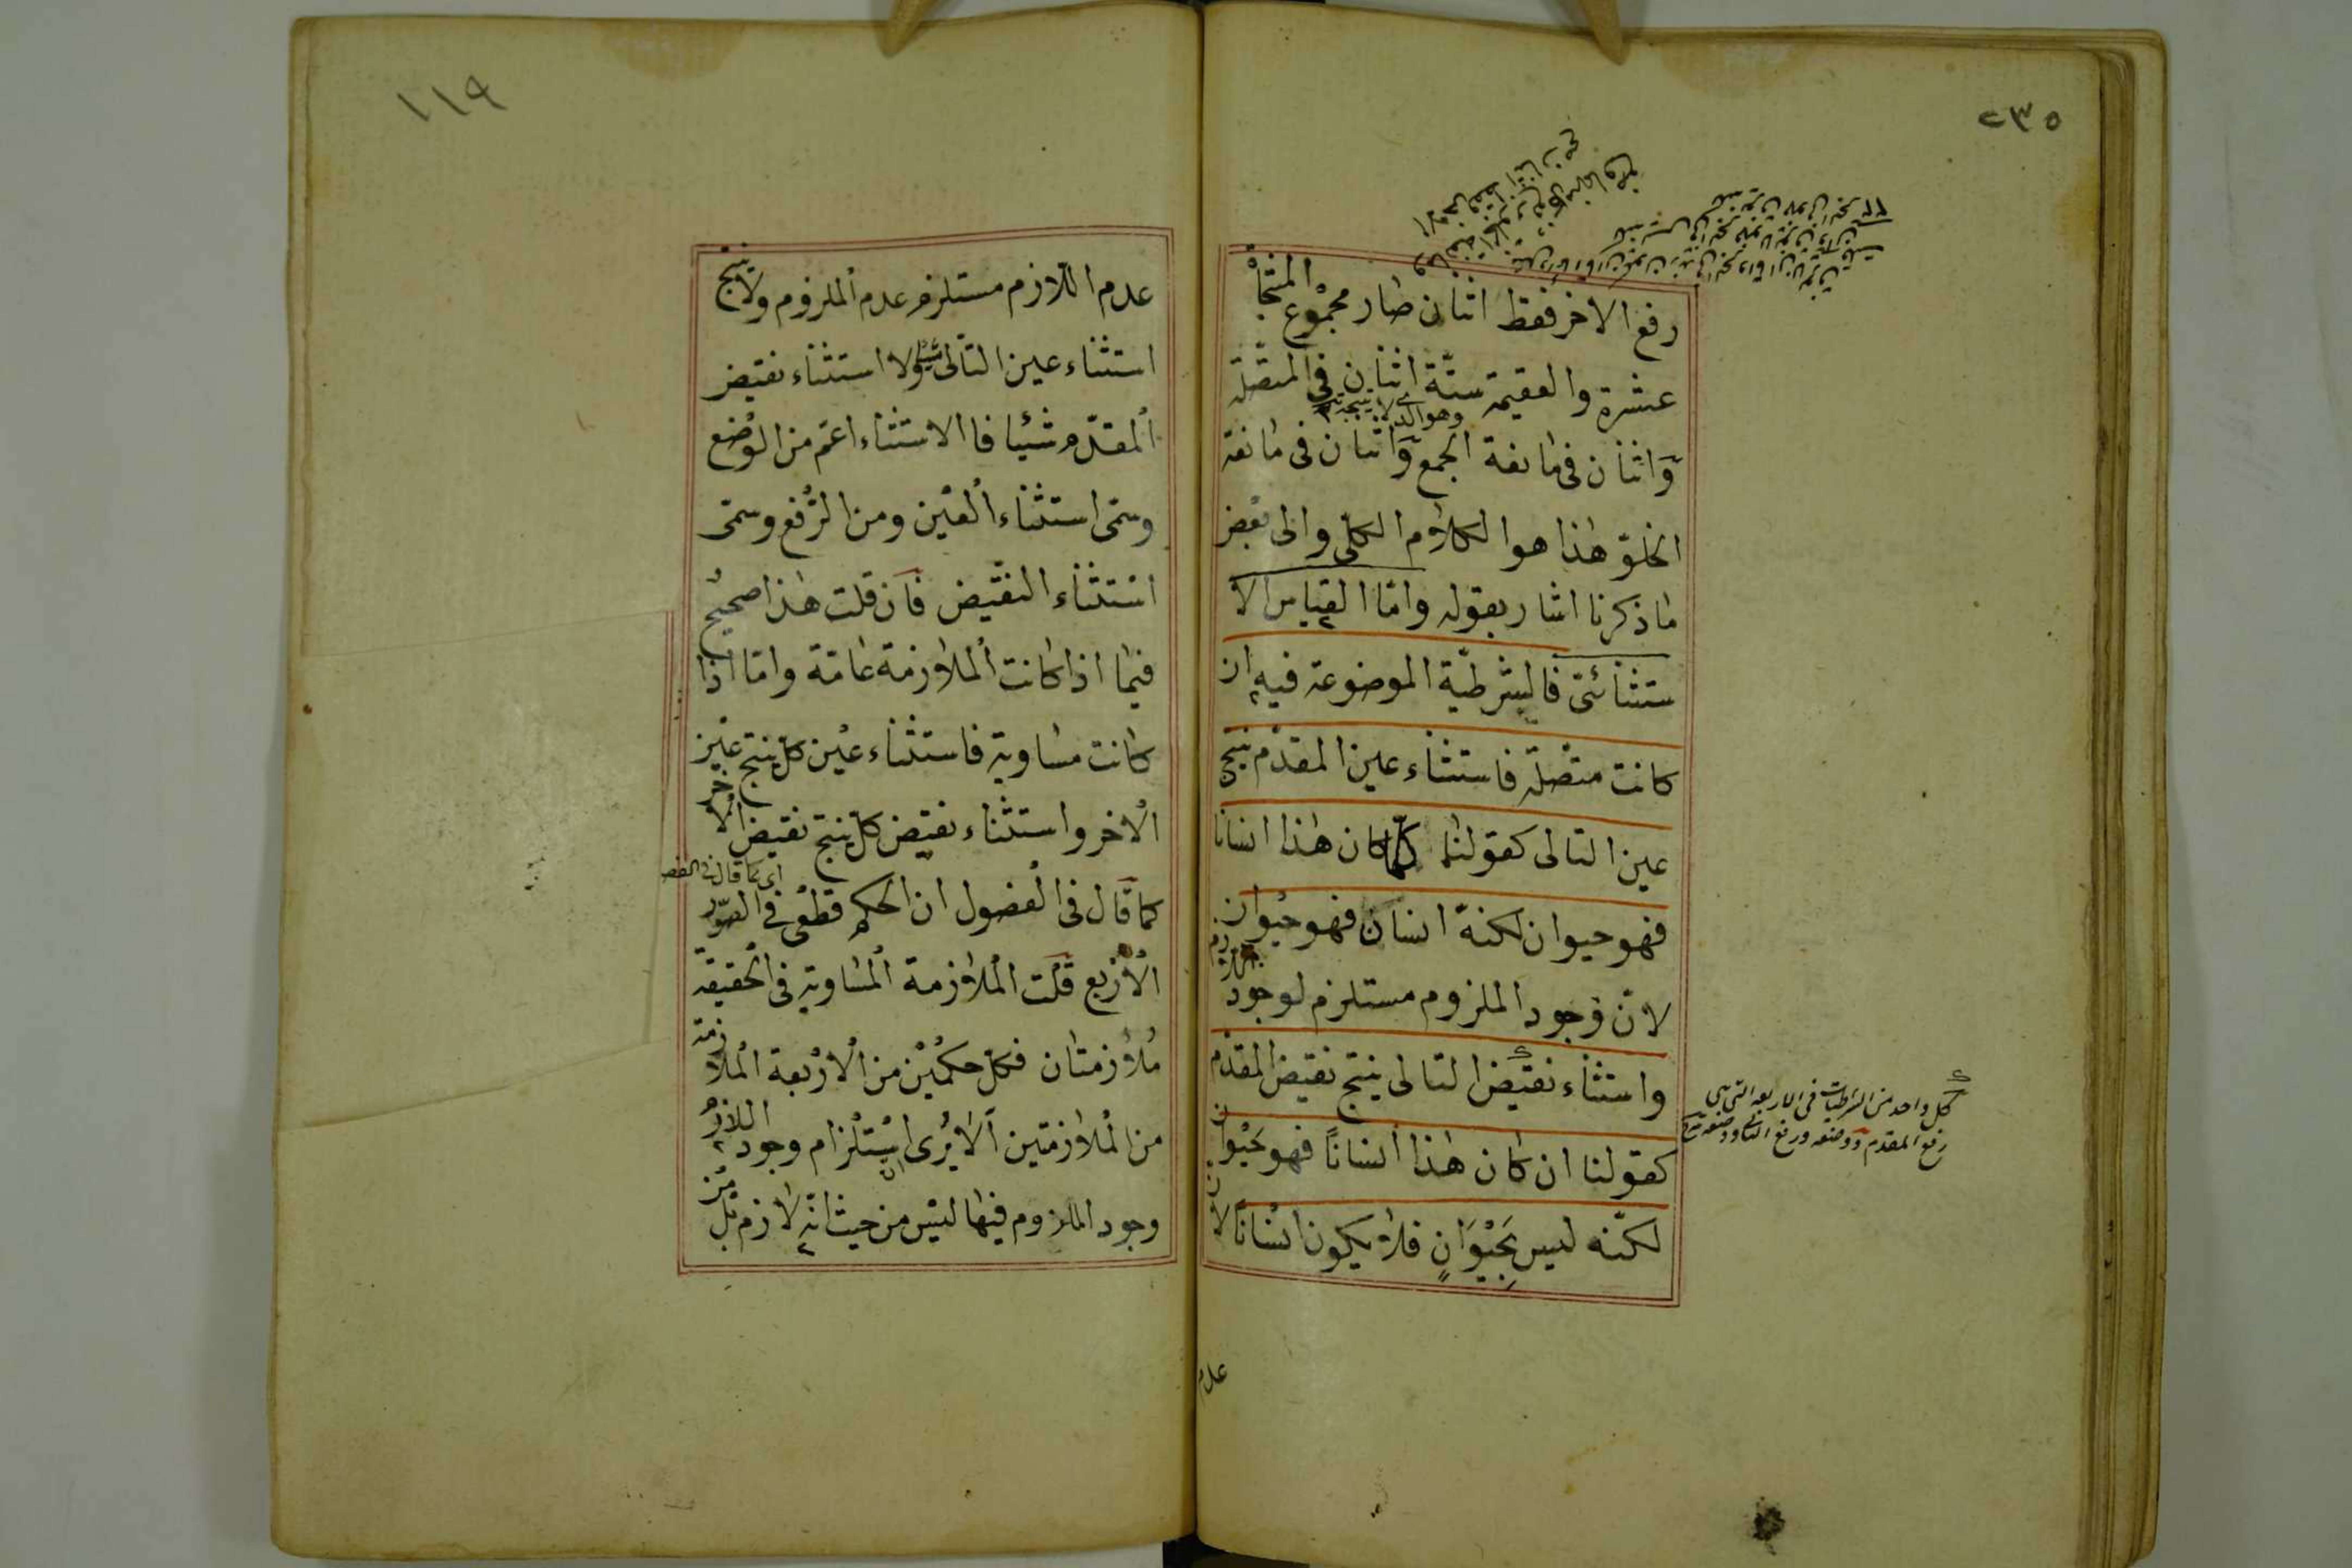 ٢٣٥
رفع الاخر فقط اثنان صار مجموع المنتجا
عشرة والعقيمة ستّة اثنان فى المتّصلة
وهو الذى لا ينتجه
وّاثنان فى مانعة الجمع وّاثنان فى مانعة
الخلوّ هذا هو الكلام الكلّى والى بعض
ما ذكرنا اشار بقوله وامّا القياس الا
ستثنائىّ فالشرطيّة الموضوعة فيه ان
كانت متّصلة فاستثناء عين المقدّم ينتج
عين التالى كقولنا كلّما كان هذا انسانا
فهو حيوان لكنّه انسان فهو حيوان
لانّ وجود الملزوم مستلزم لوجود اللازم
واستثناء نقيض التالى ينتج نقيض المقدّم
كلّ واحد من الشرطيات فى الاربعة التى هى
رفع المقدم ووضعه ورفع التالى ووضعه
كقولنا ان كان هذا انسانًا فهو حيوان
لكنّه ليس بحَيْوَانٍ فلا يكون انسانًا لانّ
عدم
١١٩
عدم اللّازم مستلزم عدم الملزوم ولا ينتج
استثناء عين التّالى شيئا ولا استثناء نقيض
المقدّم شئيا فا الاستثناء اعمّ من الوضع
وسمّى استثناء العين ومن الرّفع وسمّى
استثناء النقيض فان قلت هذا صحيح
فيما اذا كانت الملازمة عامّة وامّا اذا
كانت مساوية فاستثناء عين كلّ ينتج عين
الاخر واستثناء نقيض كلّ ينتج نقيض الاخر
كما قال فى الفصول ان الحكم قطعى فى الصّور
الاربع قلت الملازمة المساوية فى الحقيقة
ملازمتان فكلّ حكمين من الاربعة الملازمة
من الملازمتين الا يرى ان استلزام وجود اللازم
وجود الملزوم فيها ليس من حيث انّه لازم بل من